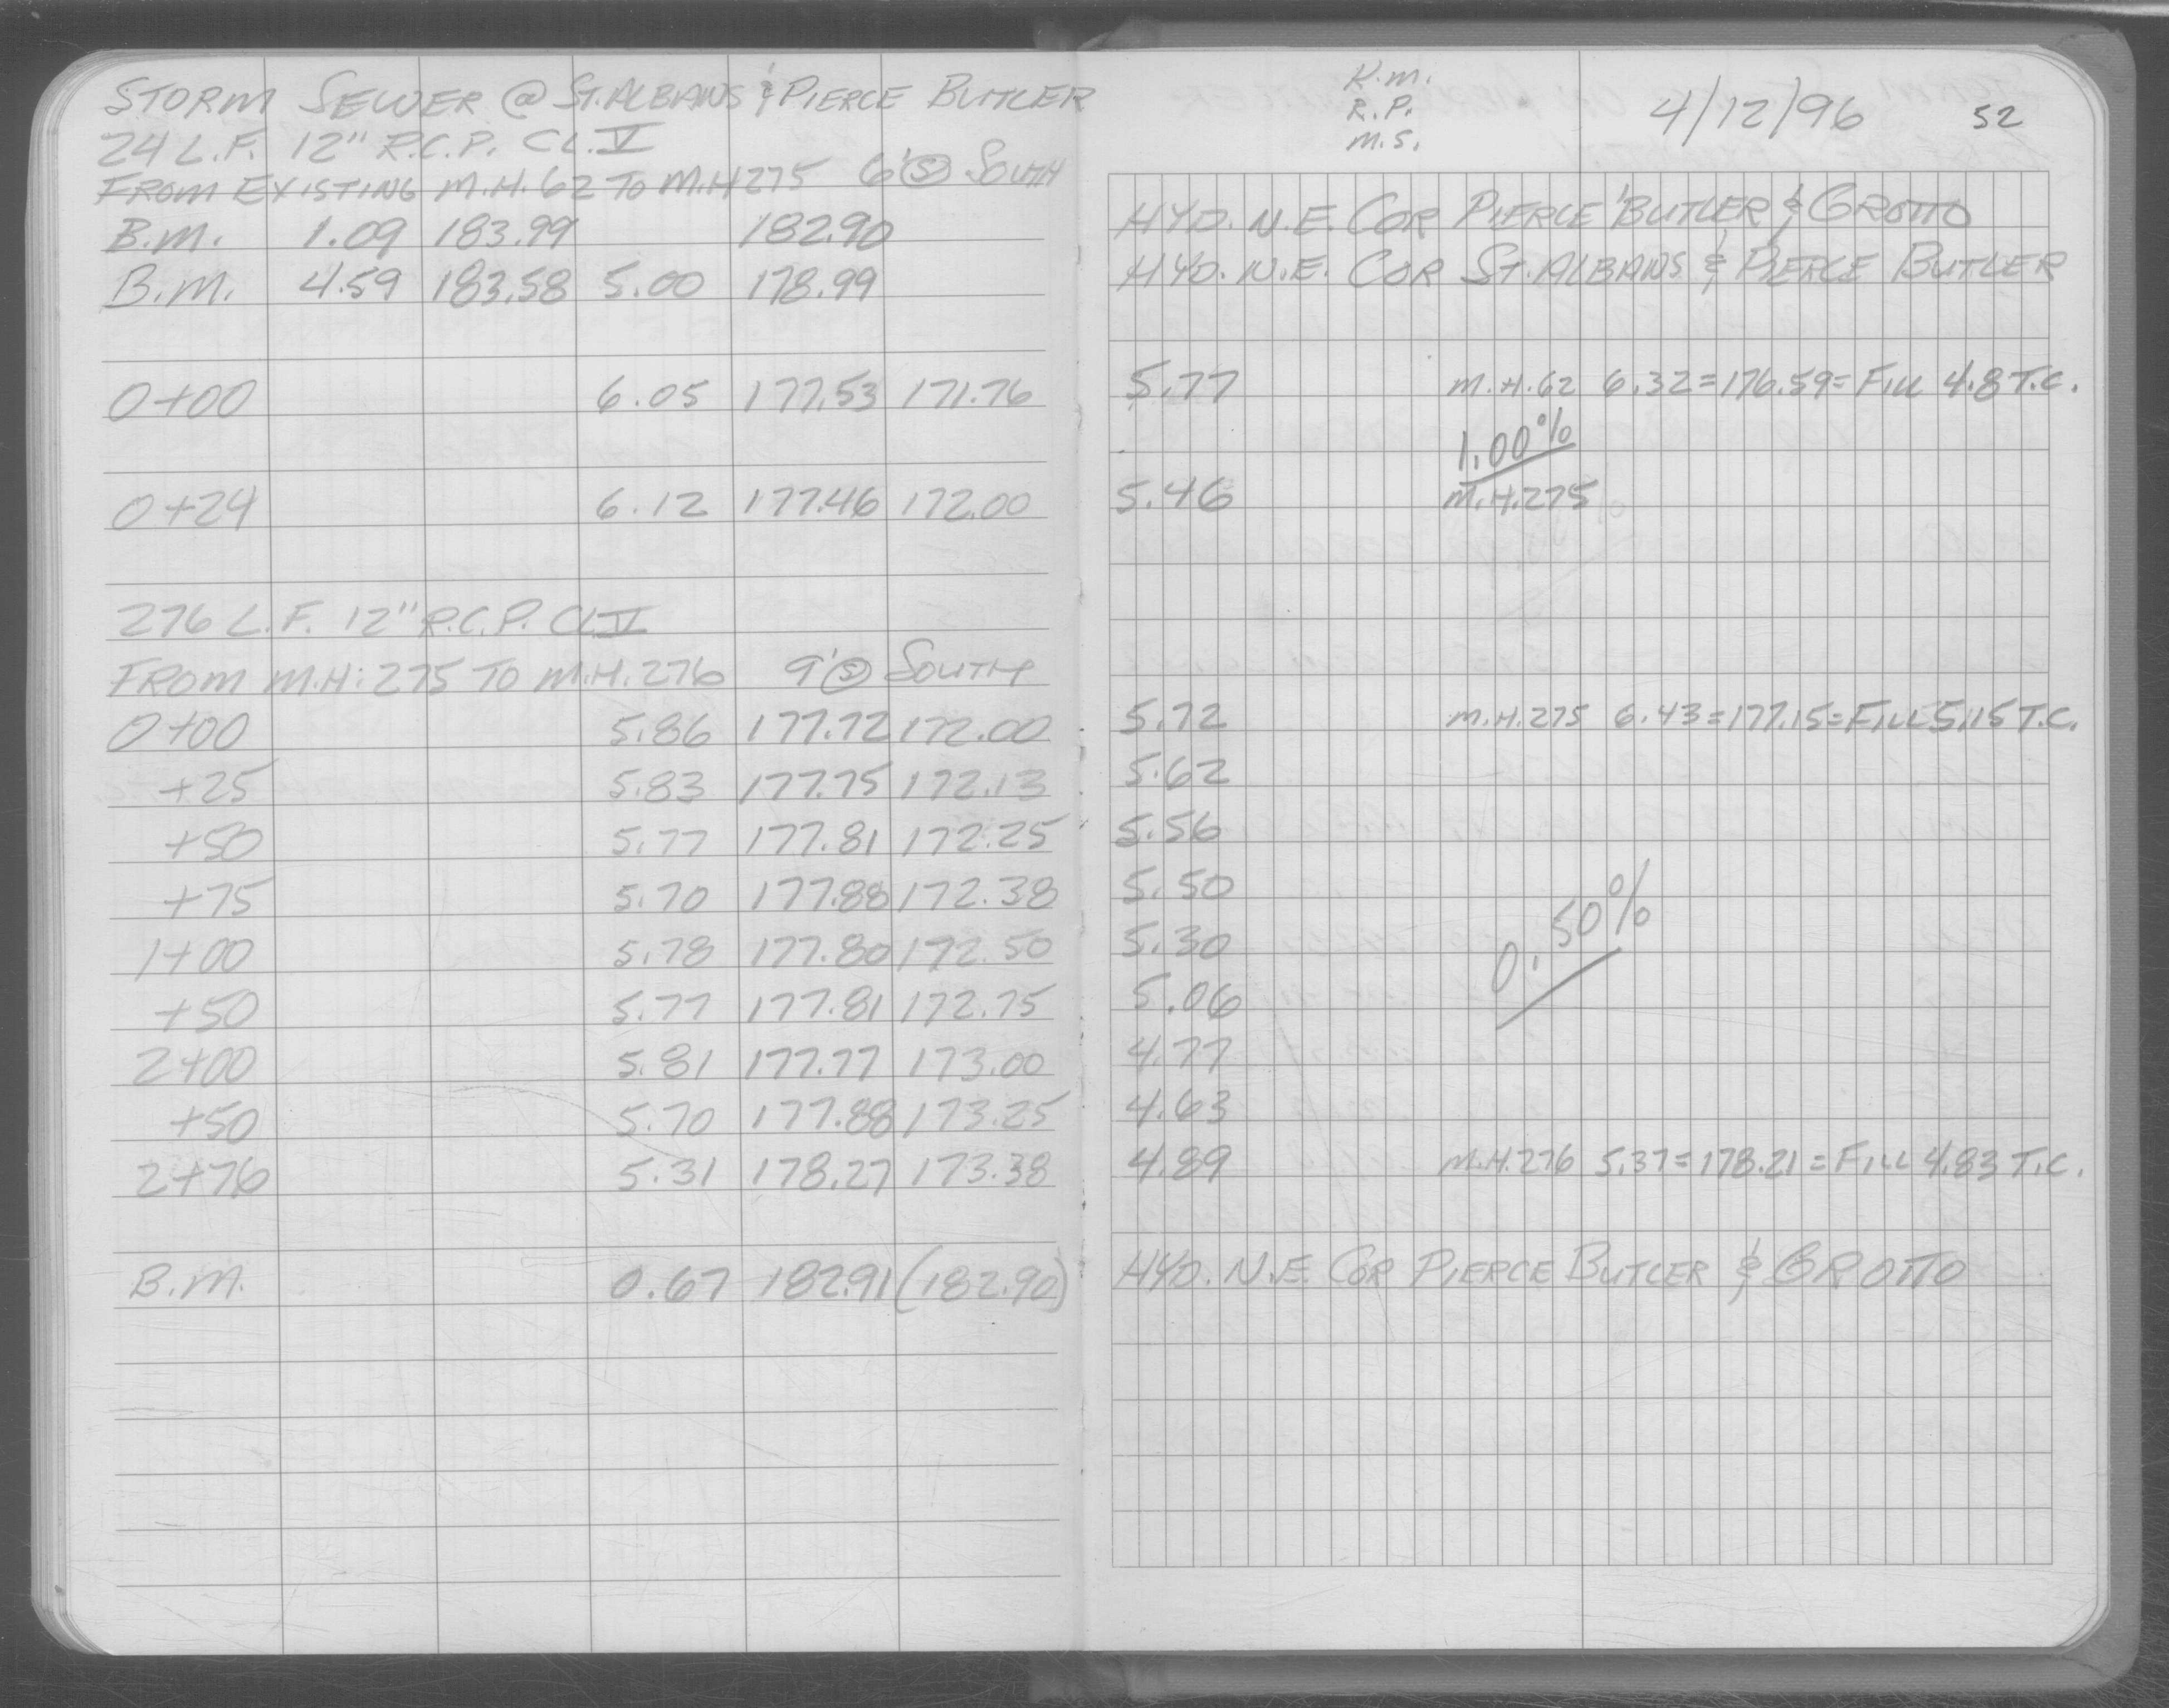 STORM SEWER @ ST. ALBANS & PIERCE BUTLER
24 L.F. 12" R.C.P. CL. V
FROM EXISTING M.H. 62 TO M.H 275 6' Ⓢ SOUTH
B.M. 1.09 183.99 182.90
B.M. 4.59 183.58 5.00 178.99
0+00 6.05 177.53 171.76
0+24 6.12 177.46 172.00
276 L.F. 12" R.C.P. CL V
FROM M.H. 275 TO M.H. 276 9' Ⓢ SOUTH
0+00 5.86 177.72 172.00
+25 5.83 177.75 172.13
+50 5.77 177.81 172.25
+75 5.70 177.88 172.38
1+00 5.78 177.80 172.50
+50 5.77 177.81 172.75
2+00 5.81 177.77 173.00
+50 5.70 177.88 173.25
2+76 5.31 178.27 173.38
B.M. 0.67 182.91 (182.90)
K.M.
R.P.
M.S.
4/12/96 52
HYD. N.E. COR PIERCE BUTLER & GROTTO
HYD. N.E. COR ST. ALBANS & PIERCE BUTLER
5.77 M.H. 62 6.32=176.59=FILL 4.8 T.C.
1.00%
5.46 M.H. 275
5.72 M.H. 275 6.43=177.15=FILL 5.15 T.C.
5.62
5.56
5.50
0.50%
5.30
5.06
4.77
4.63
4.89 M.H. 276 5.37=178.21=FILL 4.83 T.C.
HYD. N.E. COR PIERCE BUTLER & GROTTO